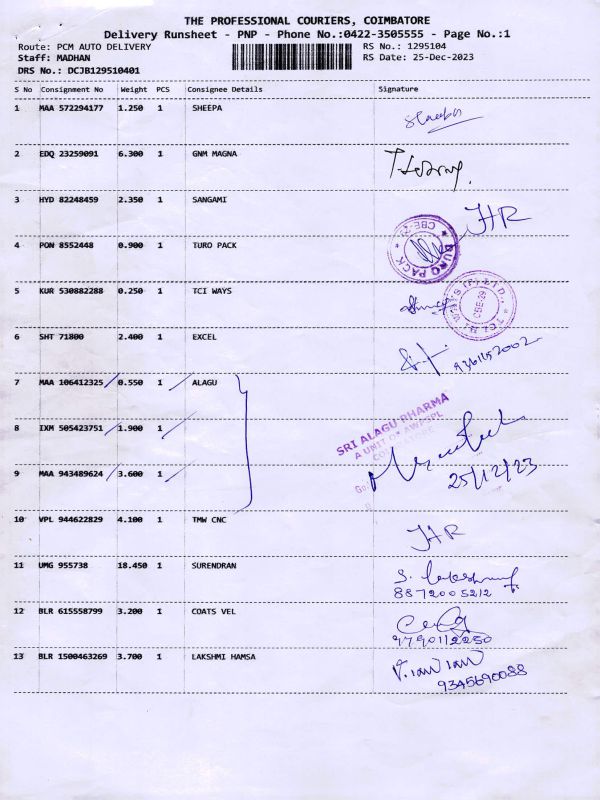 THE PROFESSIONAL COURIERS, COIMBATORE
Delivery Runsheet - PNP - Phone No.:0422-3505555 - Page No.:1
Route: PCM AUTO DELIVERY
RS No.: 1295104
Staff: MADHAN
RS Date: 25-Dec-2023
DRS No.: DCJB129510401
S No Consignment No Weight PCS Consignee Details Signature
1 MAA 572294177 1.250 1 SHEEPA
2 EDQ 23259091 6.300 1 GNM MAGNA
3 HYD 82248459 2.350 1 SANGAMI HR
4 PON 8552448 0.900 1 TURO PACK
CBE-29
BURO PACK
5 KUR 530882288 0.250 1 TCI WAYS
WAYS (P) LTD.,
CBE-29
6 SHT 71800 2.400 1 EXCEL
7 MAA 106412325 0.550 1 ALAGU
SRI ALAGU PHARMA
A UNIT OF AWPSPL
8 IXM 505423751 1.900 1
9 MAA 943489624 3.600 1
25/12/23
10 VPL 944622829 4.100 1 TMW CNC HR
11 UMG 955738 18.450 1 SURENDRAN
8872005212
12 BLR 615558799 3.200 1 COATS VEL
9790112250
13 BLR 1500463269 3.700 1 LAKSHMI HAMSA
9345690088